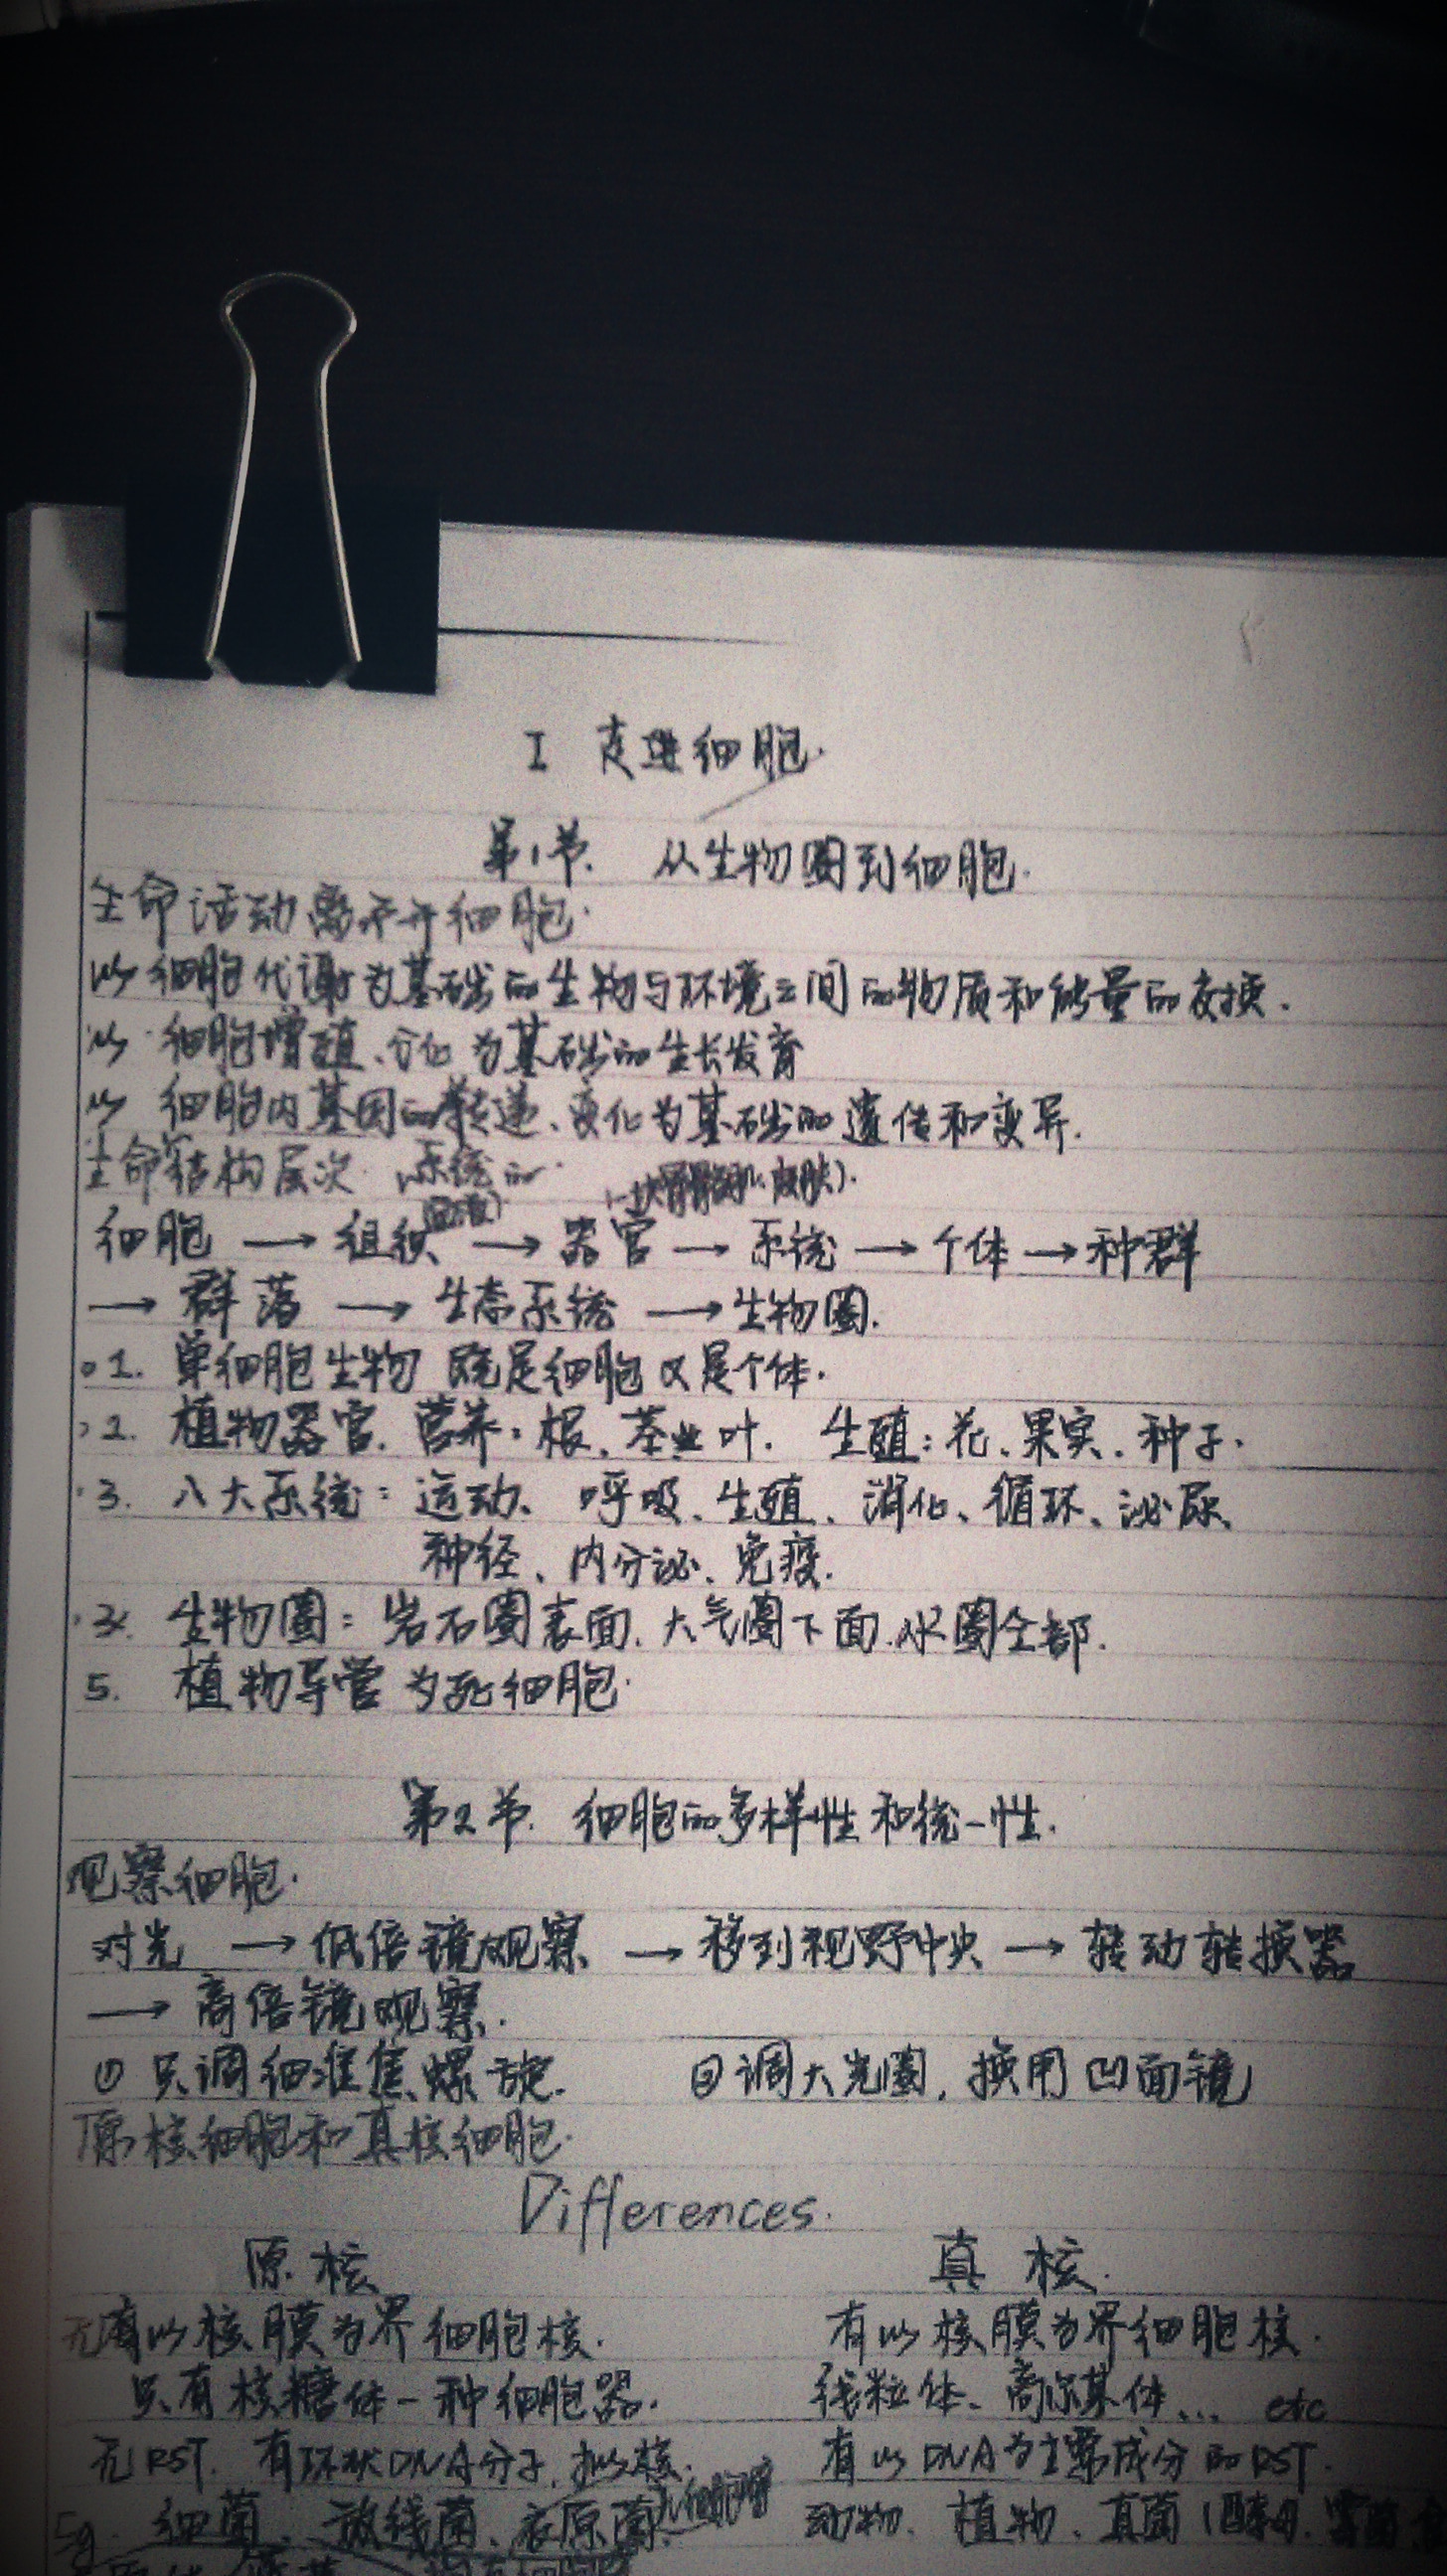 I 走进细胞.
第1节. 从生物圈到细胞.
生命活动离不开细胞.
以细胞代谢为基础的生物与环境之间的物质和能量的交换.
以细胞增殖、分化为基础的生长发育
以细胞内基因的传递、变化为基础的遗传和变异.
生命结构层次. 系统的
细胞 → 组织 → 器官 → 系统 → 个体 → 种群
→ 群落 → 生态系统 → 生物圈.
1. 单细胞生物 既是细胞又是个体.
2. 植物器官. 营养:根、茎、叶. 生殖:花、果实、种子.
3. 八大系统:运动、呼吸、生殖、消化、循环、泌尿、
神经、内分泌、免疫.
生物圈:岩石圈表面、大气圈下面、水圈全部.
5. 植物导管为死细胞.
第2节. 细胞的多样性和统一性.
观察细胞.
对光 → 低倍镜观察 → 移到视野中央 → 转动转换器
→ 高倍镜观察.
① 只调细准焦螺旋. ②调大光圈, 换用凹面镜
原核细胞和真核细胞.
Differences.
原核 真核.
无以核膜为界细胞核. 有以核膜为界细胞核.
只有核糖体一种细胞器. 线粒体、高尔基体... etc
无RST. 有环状DNA分子, 拟核. 有以DNA为主要成分的RST.
细菌、放线菌、衣原菌、 动物、植物、真菌(酵母、霉菌